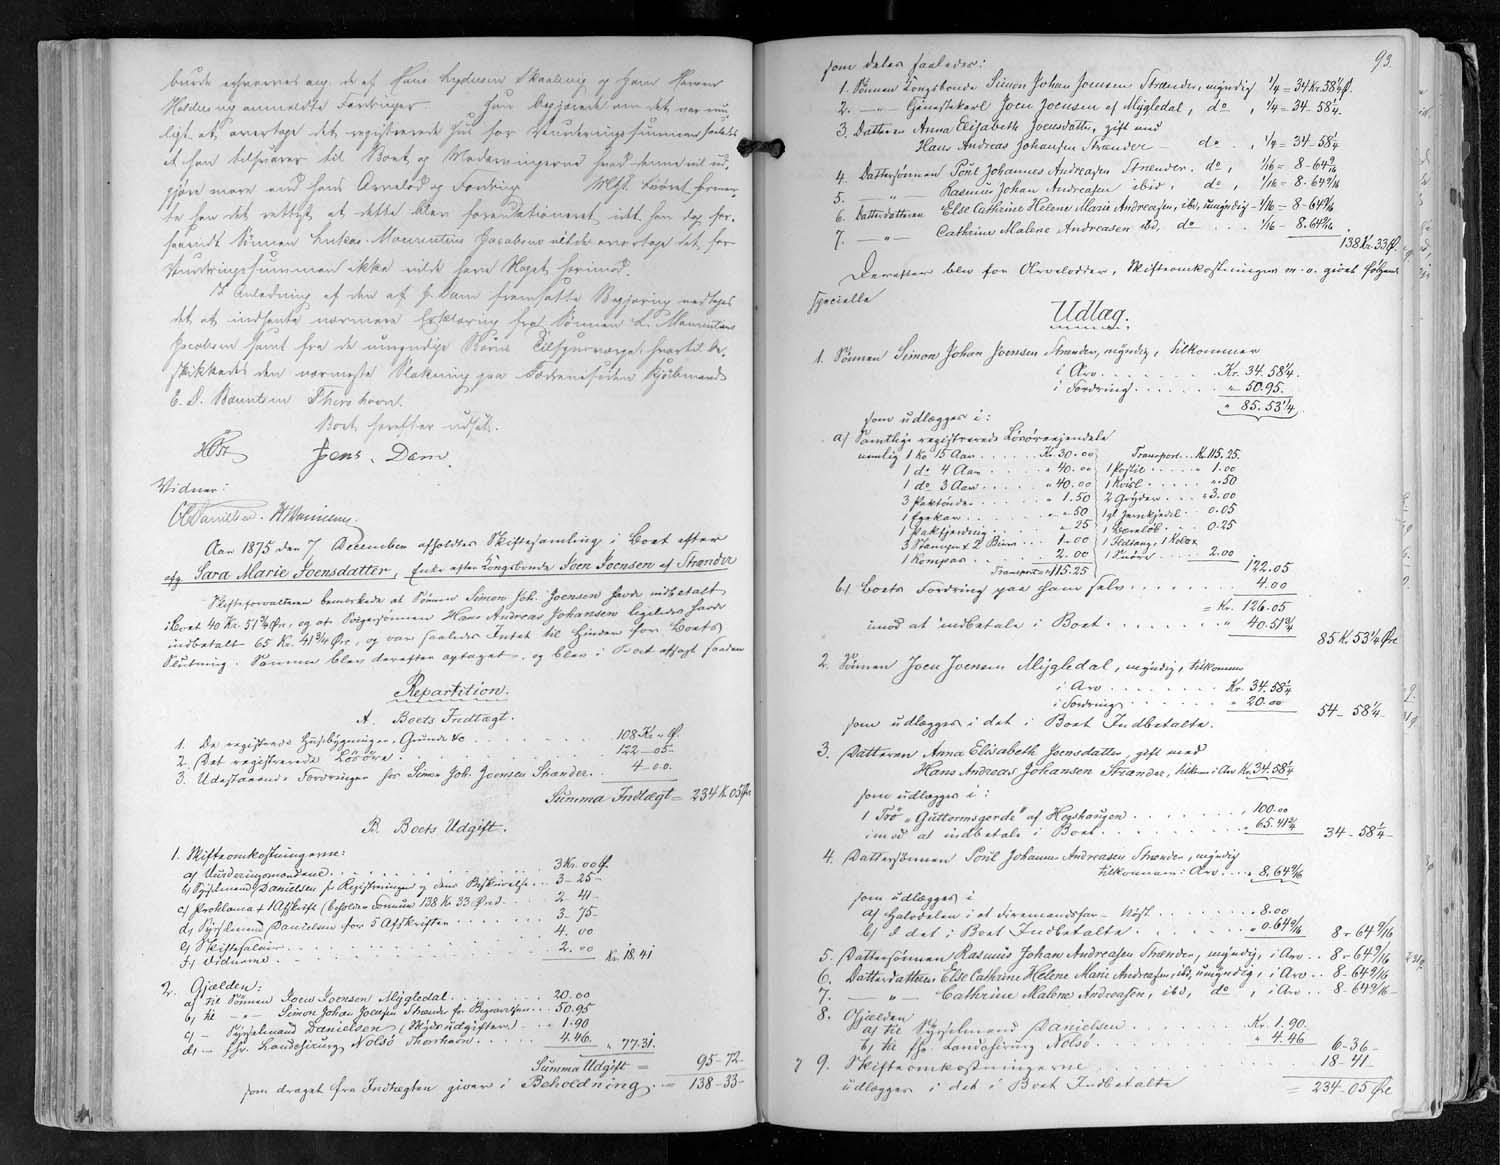 burde erhverves ang. de af Hans Lydersen Skaaling og Hans
anmeldte Fordringer. Han begjærede om det var mu-
ligt at overtage det registrerede Huus for Vurderingssummen saaledes
at han tilsvarer til Boet og Medarvingerne hvad denne vil ud-
gjøre mere end hans Arvelod og Fordring. formen-
te han det rettest at dette blev idet han dog for-
saavidt Sønnen Lukas Mourentius Jacobsen vilde overtage det for
Vurderingssummen ikke vilde have Noget herimod.
I Anledning af den af J. Dam fremsatte Begjæring vedtoges
det at indhente nærmere Erklæring fra Sønnen L. Mourentius
Jacobsen samt fra de umyndige Børns Tilsynsværge, hvortil be-
skikkedes den nærmeste Slægtning paa Fædrenesiden Kjøbmand
E. D. Bærentsen Thorshavn.
Boet herefter udsat.
HØst Jens. Dam.
Vidner:
O Danielsen.
Aar 1875 den 7 December afholdtes Skiftesamling i Boet efter
afg. Sara Marie Joensdatter, Enke efter Kongsbonde Joen Joensen af Strænder
Skifteforvalteren bemærkede at Sønnen Simon Joh. Joensen havde indbetalt
i Boet 40 Kr. 51¾ Øre, og at Svigersønnen Hans Andreas Johansen ligeledes havde
indbetalt 65 Kr. 41¾ Øre, og var saaledes Intet til Hinder for Boets
Slutning. Samme blev derefter optaget, og blev i Boet afsagt saadan
Repartition.
A. Boets Indtægt.
1. De registrerede Huusbygninger, Grunde &c . . . . 108 Kr " Ø.
2. Det registrerede Løsøre . . . . 122 — 05 -
3. Udestaaende Fordringer hos Simon Joh. Joensen Strænder . . 4 - 00.
Summa Indtægt = 234 K. 05 Øre
B. Boets Udgift.
1. Skifteomkostningerne:
a) Vurderingsmændene . . . . 3 Kr. 00 Ø.
b) Sysselmand Danielsen for Registreringen og dens Beskrivelse . . . 3 - 25 -
c) Proklama + 1 Afskrift (beholden Formue 138 K 33 Ører) . . . 2 - 41 -
d) Sysselmand Danielsen for 5 Afskrifter . . . . 3 - 75 -
e) Skiftesalair . . . . 4. 00
f) Vidnerne . . . . 2. 00 Kr. 18. 41
2. Gjælden:
a) til Sønnen Joen Joensen Mygledal . . . . 20. 00
b) til — " — Simon Johan Joensen Strænder for Begravelsen . . . 50. 95
c) — Sysselmand Danielsen (Mydsudgifter) . . " 1. 90
d) — fhv. Landchirurg Nolsø Thorshavn . . . . 4. 46. " 77. 31.
Summa Udgift = 95 - 72 -
som draget fra Indtægten giver i Beholdning . = 138 - 33 -
93.
som deles saaledes:
1. Sønnen Kongsbonde Simon Johan Joensen Strænder, myndig ¼ = 34 Kr. 58¼ Ø.
2. — " — Tjenestekarl Joen Joensen af Mygledal, do , ¼ = 34 - 58¼ -
3. Datteren Anna Elisabeth Joensdatter, gift med
Hans Andreas Johansen Strænder — do . , ¼ = 34 - 58¼
4. Dattersønnen Poul Johannes Andreasen Strænder. do , 1/16 = 8 - 64 9/16
5. — " — Rasmus Johan Andreasen ibid, do , 1/16 = 8 - 64 9/16
6. Datterdatteren Else Cathrine Helene Marie Andreasen, ibid, umyndig - 1/16 = 8 - 64 9/16
7. — " — Cathrine Malene Andreasen ibd, do . . . 1/16 - 8. 64 9/16
138 Kr. 33 Ø.
Derefter blev for Arvelodder, Skifteomkostninger m. v. givet følgende
specielle
Udlæg.
1. Sønnen Simon Johan Joensen Strænder, myndig, tilkommer
i Arv . . . . Kr. 34. 58¼
i Fordring . . . . " 50. 95.
" 85. 53¼
som udlægges i:
a) Samtlige registrerede Løsøreeiendele
nemlig 1 Ko 15 Aar . . . Kr. 30. 00
1 do 4 Aar . . . " 40. 00
1 do 3 Aar . . . " 40. 00
3 Paktønder . . . " 1. 50
1 Egekar . . . " " 50
1 Pakfjerding . . . " " 25
3 Stamper & 2 Biner . . 1 - 00
1 Kompas . . . 2. 00
Transport = 115. 25
Transport . . K. 115. 25.
1 Postil . . . " 1. 00
1 Kvisl . . . " " . 50
2 Gryder . . . " 3. 00
1 gl Jernkjedel . . 0. 05
1 Læreløb . . . 0. 25
1 Ildtang, 1
1 Snøre . . . 2. 00
122. 05
b) Boets Fordring paa ham selv . . . . 4. 00
= Kr. 126. 05
imod at indbetale i Boet . . . . " 40. 51¾
85 K. 53¼ Øre
2. Sønnen Joen Joensen Mygledal, myndig, tilkommer
i Arv . . . . Kr. 34. 58¼
i Fordring . . . . " 20. 00
som udlægges i det i Boet Indbetalte. 54 — 58¼ -
3. Datteren Anna Elisabeth Joensdatter, gift med
Hans Andreas Johansen Strænder, tilkom. i Arv Kr. 34. 58¼
som udlægges i:
1 Tvø "Guttormsgerde" af Høgshaugen . . . . " 100. 00
imod at indbetale i Boet . . . . " 65. 41¾ 34 - 58¼ -
4. Dattersønnen Poul Johannes Andreasen Strænder, myndig
tilkommer i Arv . . . " 8. 64 9/16
som udlægges i
a) Halvdelen i et Firemandsfar - Nøst . . . . " 8. 00
b) I det i Boet Indbetalte . . . . " 0. 64 9/16 8 - 64 9/16
5. Dattersønnen Rasmus Johan Andreasen Strænder, myndig, i Arv . . 8 - 64 9/16
6. Datterdatteren Else Cathrine Helene Marie Andreasen, ibd, umyndig, i Arv . . 8 - 64 9/16
7. — " — Cathrine Malene Andreasen, ibid, do , i Arv . . 8 - 64 9/16 -
8. Gjælden
a) til Sysselmand Danielsen . . . . Kr. 1. 90.
b) til fhv. Landchirurg Nolsø . . . . " 4. 46 6 - 36 -
9. Skifteomkostningerne . . . . 18 - 41 -
udlægges i det i Boet Indbetalte = 234 - 05 Øre